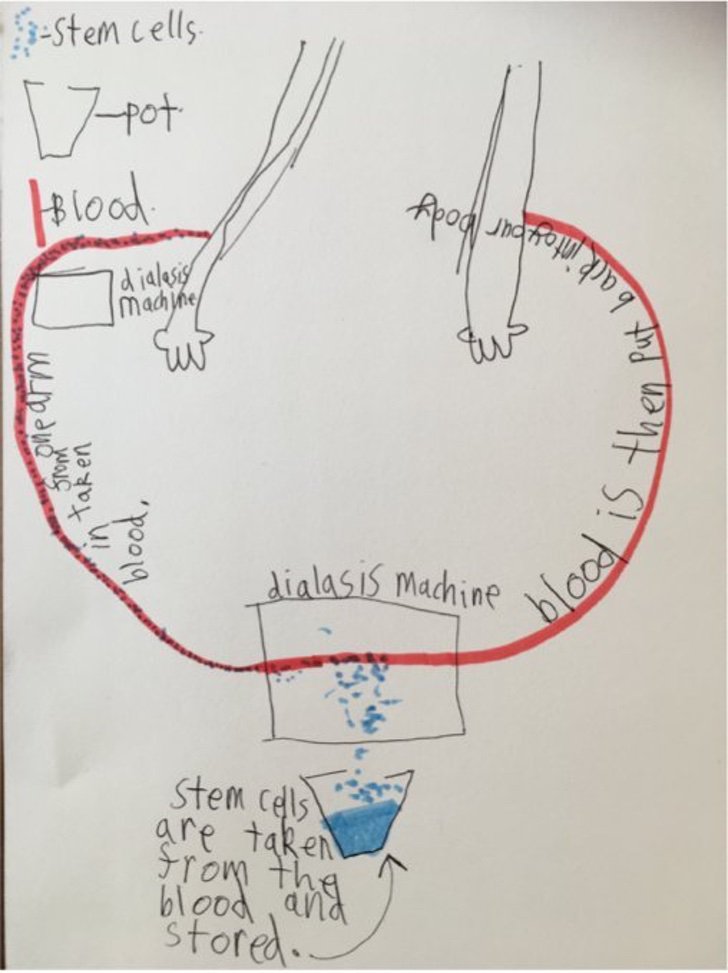 -stem cells.
-pot.
Blood.
dialasis
machine
one arm
from
taken
in
blood.
blood is then put back into your body
dialasis machine
stem cells
are taken
from the
blood and
stored.